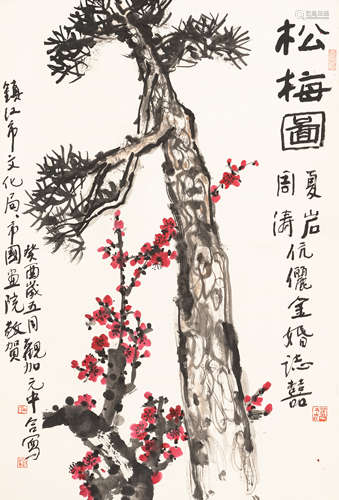 松梅圖
夏岩
周濤伉儷金婚誌囍
鎮江市文化局、市國画院敬賀
癸酉歲五月觀加元中合寫